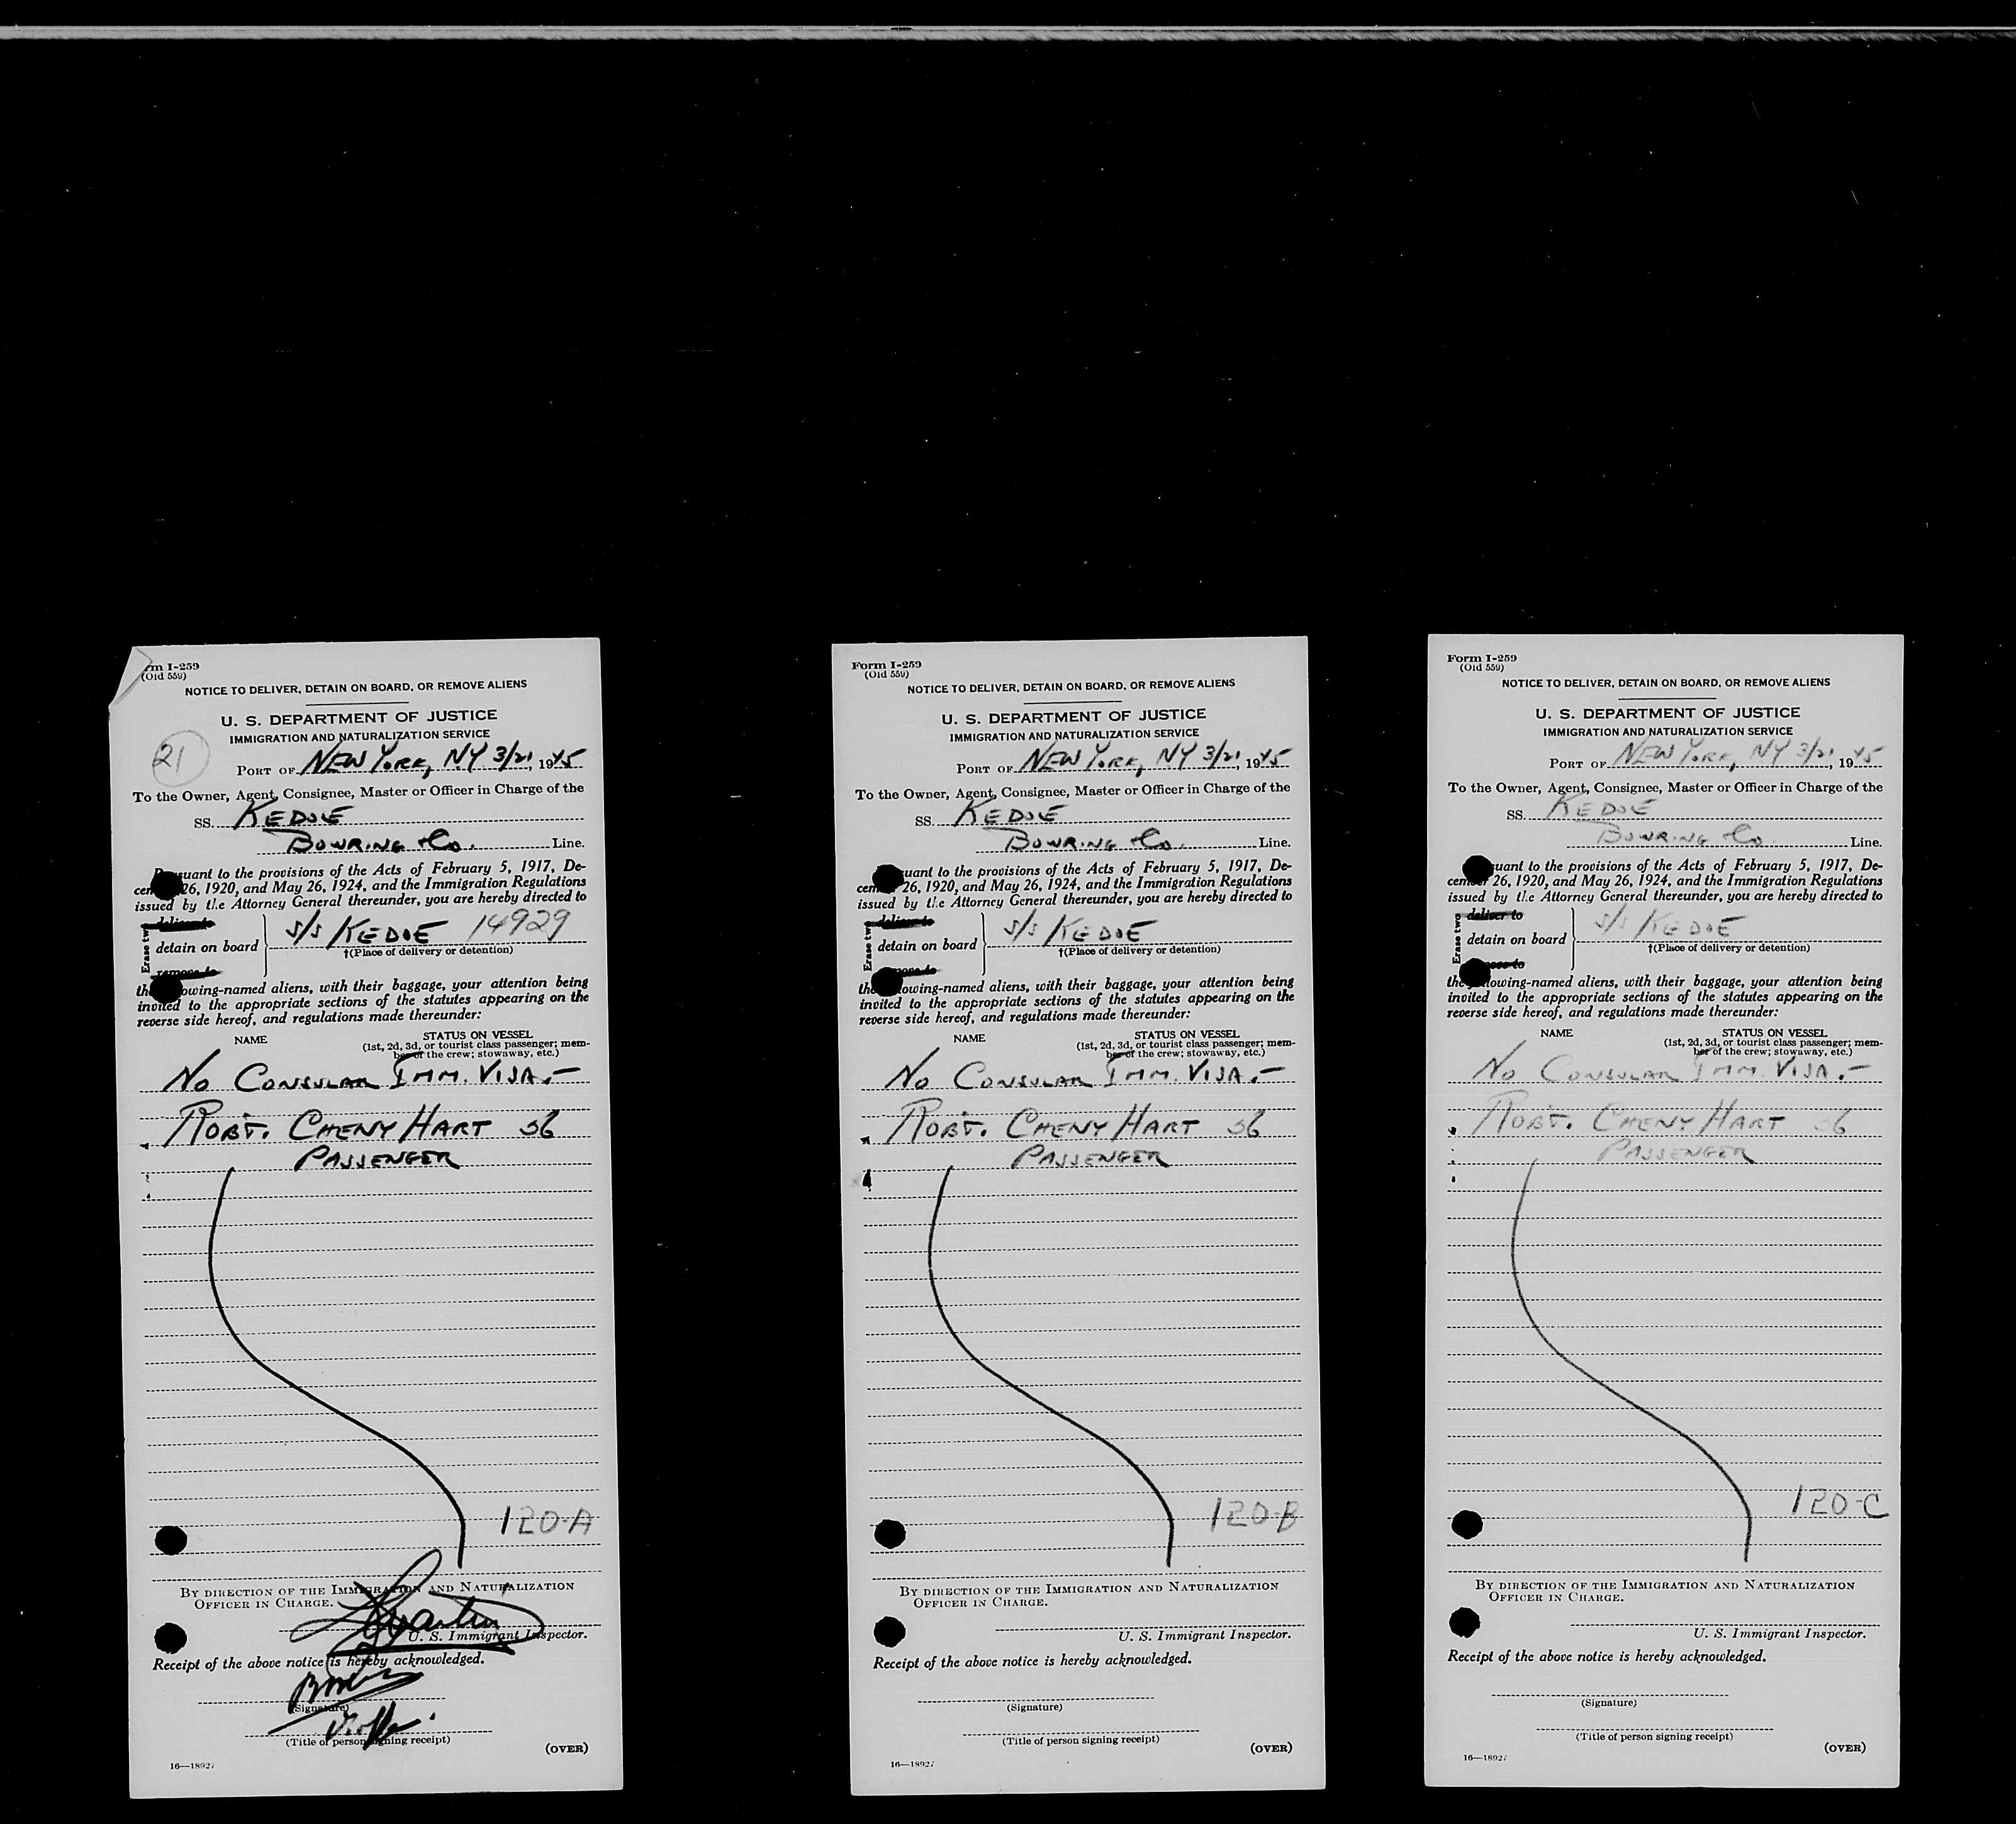 rm I-259
(Old 559)
NOTICE TO DELIVER, DETAIN ON BOARD, OR REMOVE ALIENS
U. S. DEPARTMENT OF JUSTICE
IMMIGRATION AND NATURALIZATION SERVICE
21
PORT OF NEW YORK, NY 3/21, 1945
To the Owner, Agent, Consignee, Master or Officer in Charge of the
SS. KEDOE
BOWRING & Co. Line.
suant to the provisions of the Acts of February 5, 1917, De-
cem 26, 1920, and May 26, 1924, and the Immigration Regulations
issued by the Attorney General thereunder, you are hereby directed to
Erase two
deliver to
detain on board
remove to
S/S KEDOE 14929
†(Place of delivery or detention)
the owing-named aliens, with their baggage, your attention being
invited to the appropriate sections of the statutes appearing on the
reverse side hereof, and regulations made thereunder:
NAME
STATUS ON VESSEL
(1st, 2d, 3d, or tourist class passenger; mem-
ber of the crew; stowaway, etc.)
NO CONSULAR IMM. VISA.-
ROBT. CHENY HART 56
PASSENGER
120-A
BY DIRECTION OF THE IMMIGRATION AND NATURALIZATION
OFFICER IN CHARGE.
U. S. Immigrant Inspector.
Receipt of the above notice is hereby acknowledged.
(Signature)
(Title of person signing receipt)
(OVER)
16—18927
Form I-259
(Old 559)
NOTICE TO DELIVER, DETAIN ON BOARD, OR REMOVE ALIENS
U. S. DEPARTMENT OF JUSTICE
IMMIGRATION AND NATURALIZATION SERVICE
PORT OF NEW YORK, NY 3/21, 1945
To the Owner, Agent, Consignee, Master or Officer in Charge of the
SS. KEDOE
BOWRING & Co. Line.
uant to the provisions of the Acts of February 5, 1917, De-
cem r 26, 1920, and May 26, 1924, and the Immigration Regulations
issued by the Attorney General thereunder, you are hereby directed to
Erase two
deliver to
detain on board
move to
S/S KEDOE
†(Place of delivery or detention)
the owing-named aliens, with their baggage, your attention being
invited to the appropriate sections of the statutes appearing on the
reverse side hereof, and regulations made thereunder:
NAME
STATUS ON VESSEL
(1st, 2d, 3d, or tourist class passenger; mem-
ber of the crew; stowaway, etc.)
NO CONSULAR IMM. VISA.-
ROBT. CHENY HART 56
PASSENGER
120-B
BY DIRECTION OF THE IMMIGRATION AND NATURALIZATION
OFFICER IN CHARGE.
U. S. Immigrant Inspector.
Receipt of the above notice is hereby acknowledged.
(Signature)
(Title of person signing receipt)
(OVER)
16—18927
Form I-259
(Old 559)
NOTICE TO DELIVER, DETAIN ON BOARD, OR REMOVE ALIENS
U. S. DEPARTMENT OF JUSTICE
IMMIGRATION AND NATURALIZATION SERVICE
PORT OF NEW YORK, NY 3/21, 1945
To the Owner, Agent, Consignee, Master or Officer in Charge of the
SS. KEDOE
BOWRING & Co. Line.
uant to the provisions of the Acts of February 5, 1917, De-
cem r 26, 1920, and May 26, 1924, and the Immigration Regulations
issued by the Attorney General thereunder, you are hereby directed to
Erase two
deliver to
detain on board
move to
S/S KEDOE
†(Place of delivery or detention)
the lowing-named aliens, with their baggage, your attention being
invited to the appropriate sections of the statutes appearing on the
reverse side hereof, and regulations made thereunder:
NAME
STATUS ON VESSEL
(1st, 2d, 3d, or tourist class passenger; mem-
ber of the crew; stowaway, etc.)
NO CONSULAR IMM. VISA.-
ROBT. CHENY HART 56
PASSENGER
120-C
BY DIRECTION OF THE IMMIGRATION AND NATURALIZATION
OFFICER IN CHARGE.
U. S. Immigrant Inspector.
Receipt of the above notice is hereby acknowledged.
(Signature)
(Title of person signing receipt)
(OVER)
16—18927